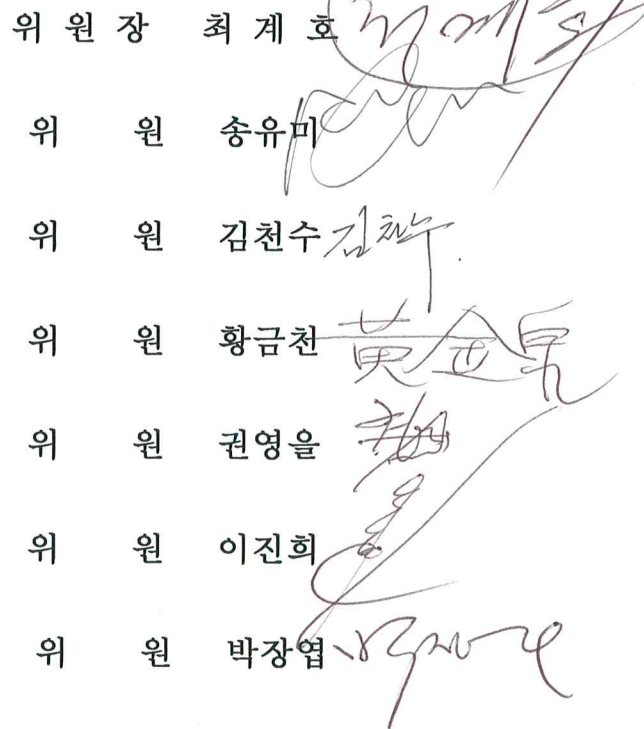 위 원 장 최 계 호 최계호
위 원 송유미
위 원 김천수 김천수
위 원 황금천 黃金泉
위 원 권영을
위 원 이진희
위 원 박장엽